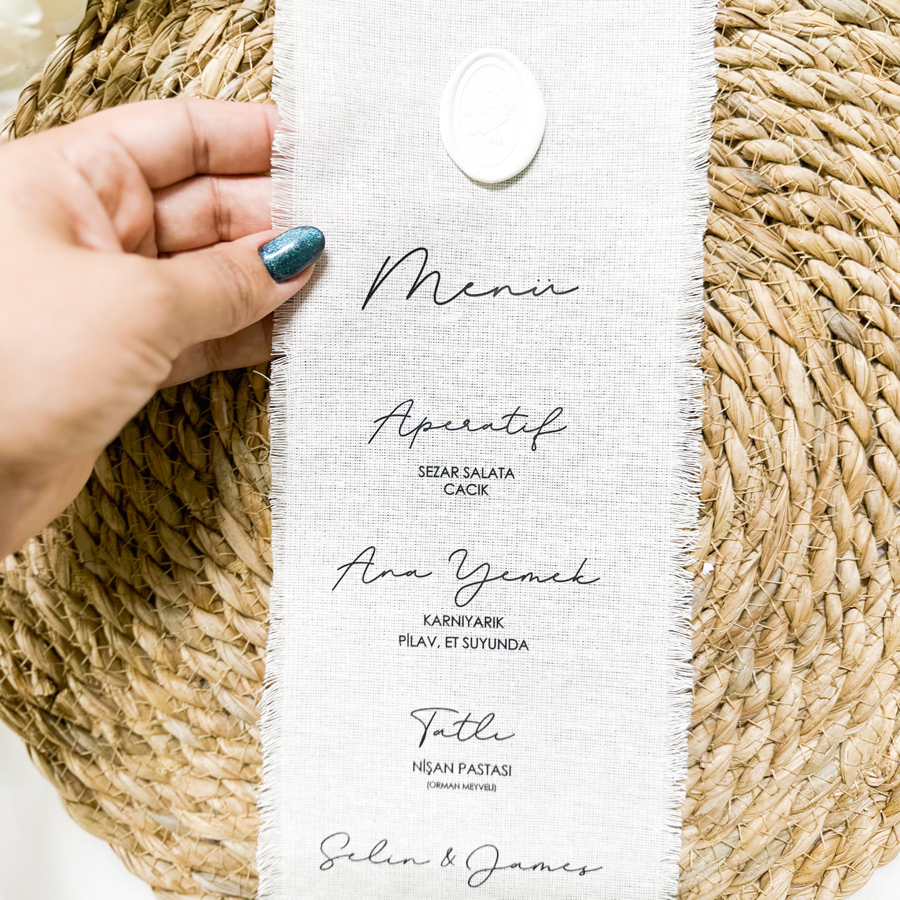 Menü
Aperatif
SEZAR SALATA
CACIK
Ana Yemek
KARNIYARIK
PİLAV, ET SUYUNDA
Tatlı
NİŞAN PASTASI
(ORMAN MEYVELİ)
Selin & James